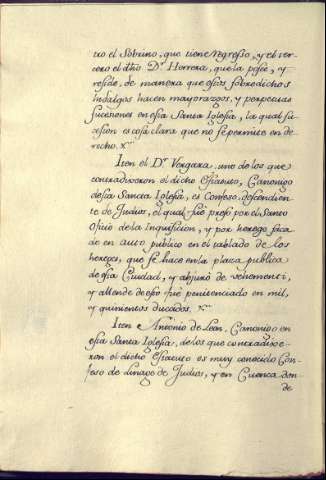 cro el Sobrino, que tiene regresso, y el ter-
cero el dho Dr. Herrera, que la posee, y
reside, de manera que estos sobredichos
hidalgos hacen mayorazgos, y perpetuas
sucesiones en esta Santa Iglesia, la qual su-
cesion es cosa clara que no se permite en de-
recho.
Iten el Dr. Vergara, uno de los que
contradixeron el dicho Estatuto, Canonigo
desta Sancta Iglesia, es Confeso, descendien-
te de Judios, el qual fue preso por el Santo
Oficio de la Inquisicion, y por herege saca-
do en auto publico en el tablado de los
hereges, que se hace en la plaza publica
de esta Ciudad, y abjuró de vehementi,
y allende de esso fue penitenciado en mil,
y quinientos ducados.
Iten Antonio de Leon, Canonigo en
esta Santa Iglesia, de los que contradixe-
ron el dicho Estatuto es muy conocido Con-
feso de linage de Judios, y en Cuenca don-
de